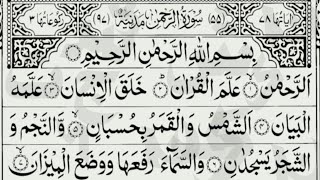 اٰیَاتُهَا ۷۸ (۵۵) سُوْرَةُ الرَّحْمٰنِ مَدَنِیَّةٌ (۹۷) رُكُوْعَاتُهَا ۳
بِسْمِ اللّٰهِ الرَّحْمٰنِ الرَّحِیْمِ
اَلرَّحْمٰنُ ۙ﴿۱﴾ عَلَّمَ الْقُرْاٰنَ ؕ﴿۲﴾ خَلَقَ الْاِنْسَانَ ۙ﴿۳﴾ عَلَّمَهُ
الْبَیَانَ ﴿۴﴾ اَلشَّمْسُ وَ الْقَمَرُ بِحُسْبَانٍ ﴿۵﴾ وَّ النَّجْمُ وَ
الشَّجَرُ یَسْجُدٰنِ ﴿۶﴾ وَ السَّمَآءَ رَفَعَهَا وَ وَضَعَ الْمِیْزَانَ ۙ﴿۷﴾